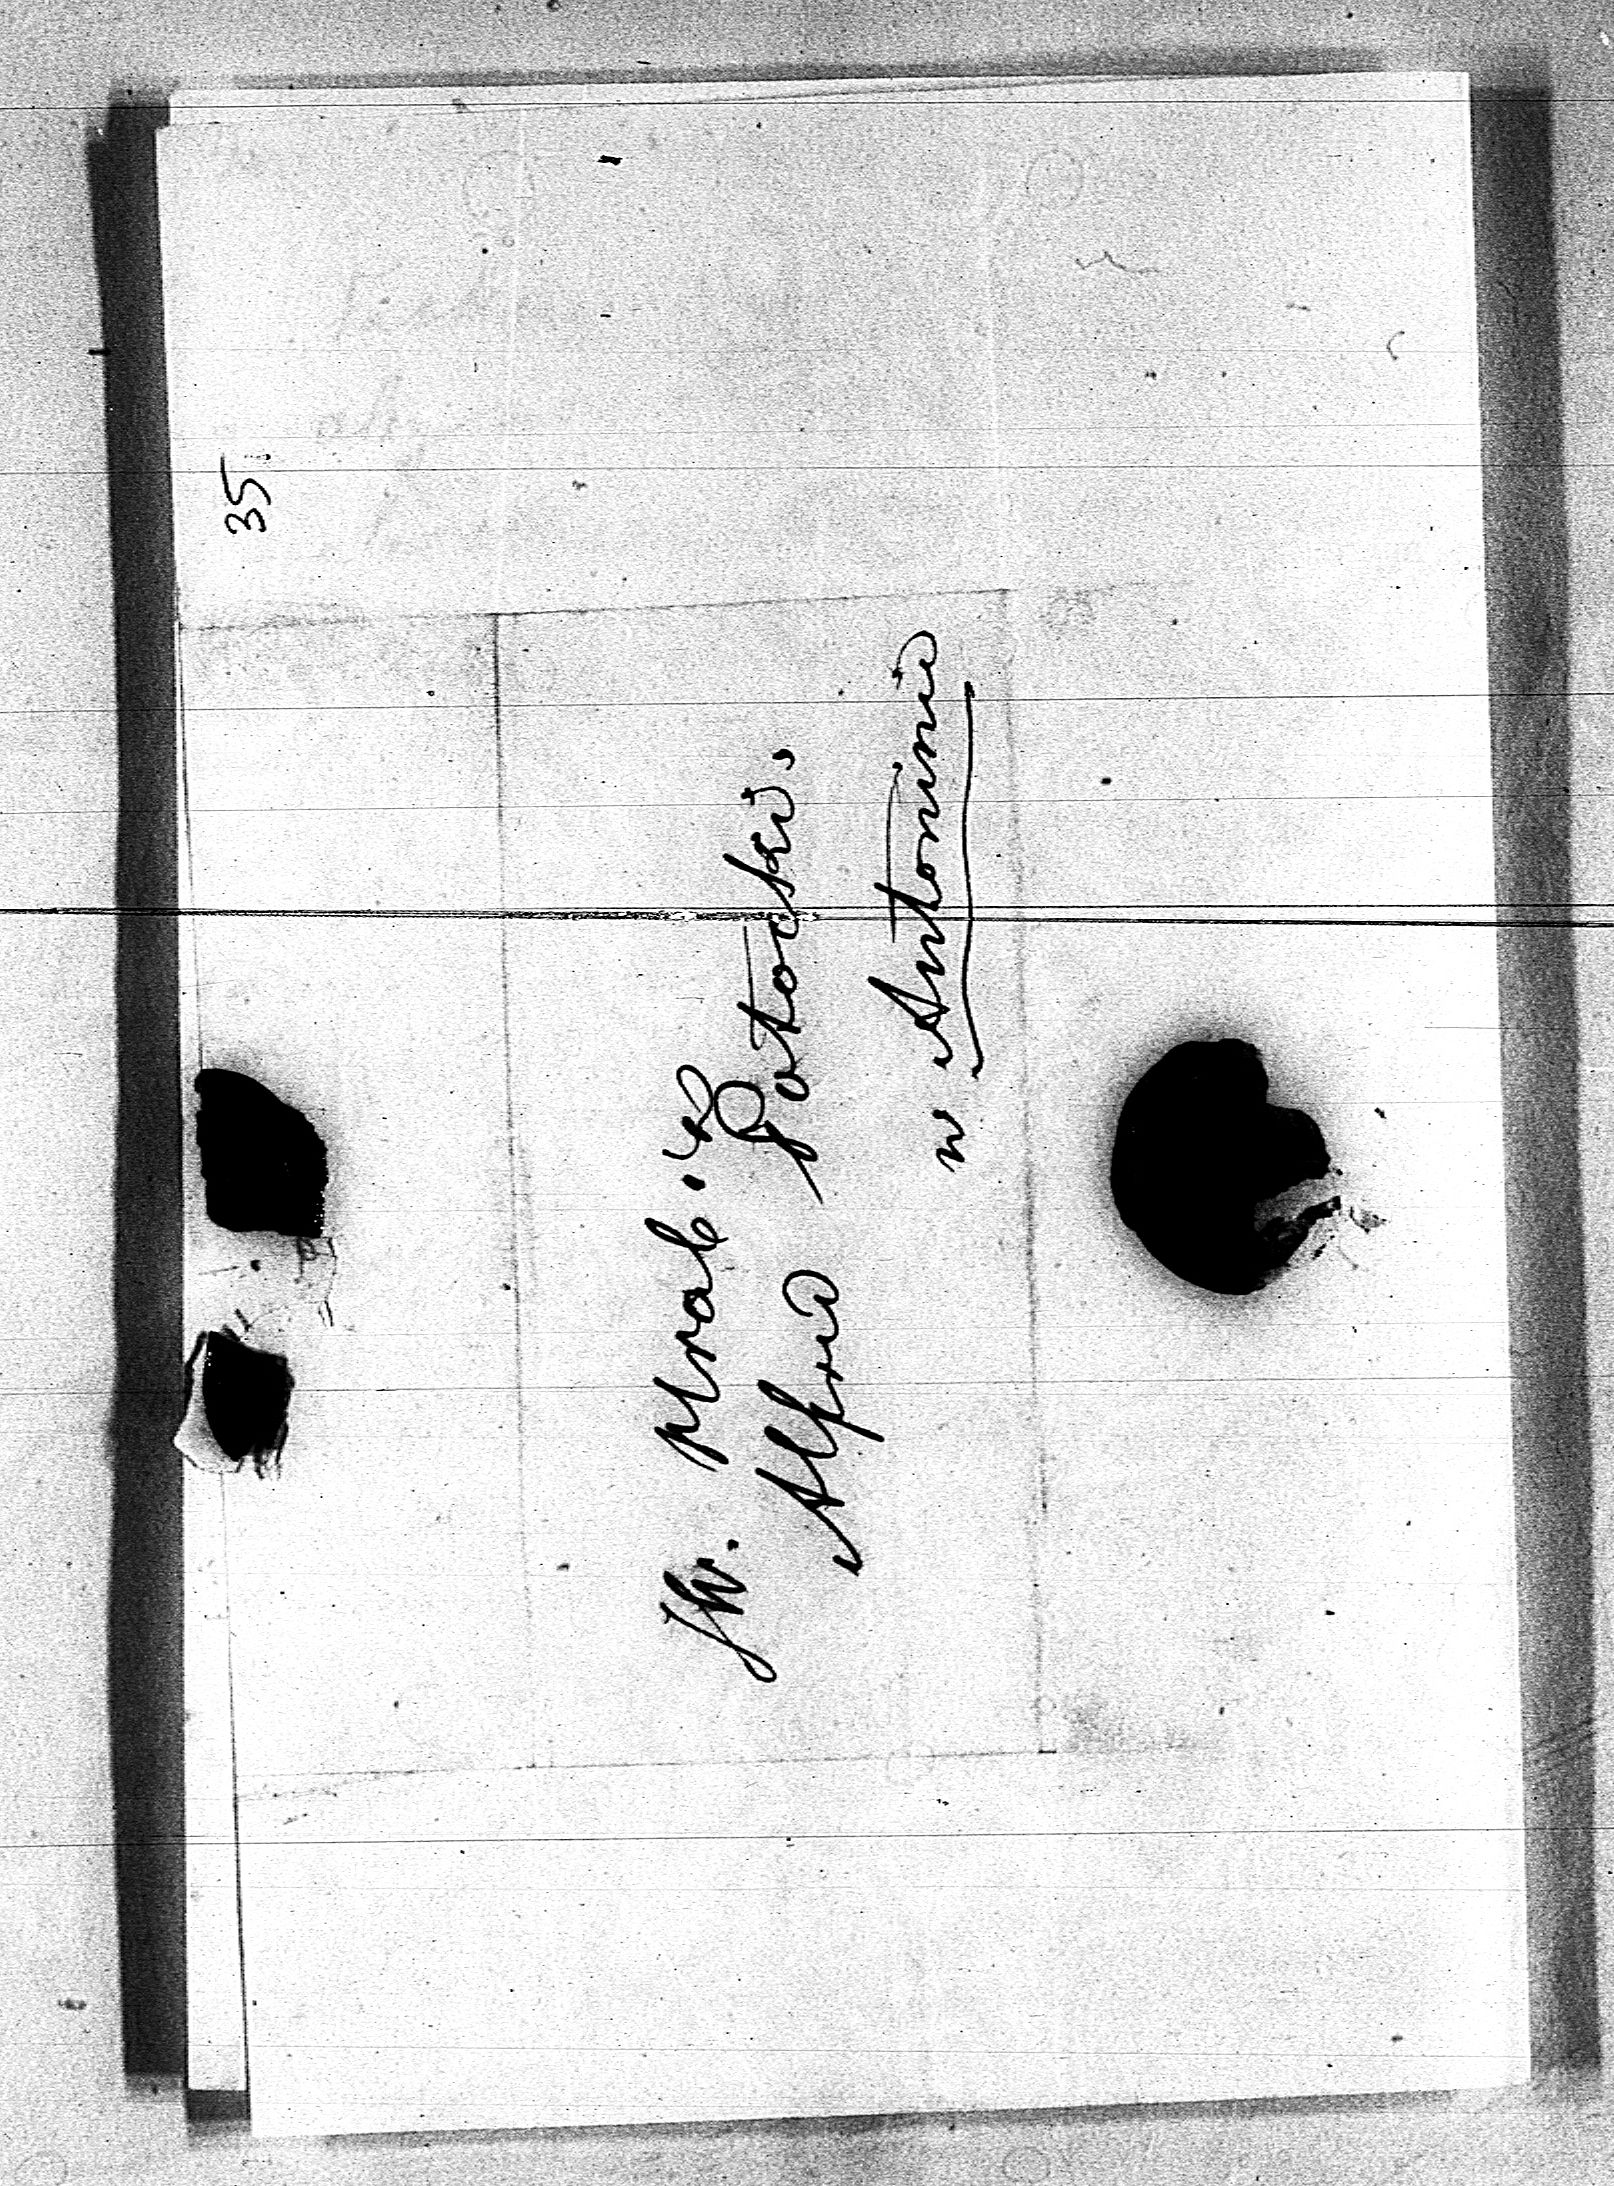 35
JW. Hrabia
Alfred Potocki.
w Antoninie